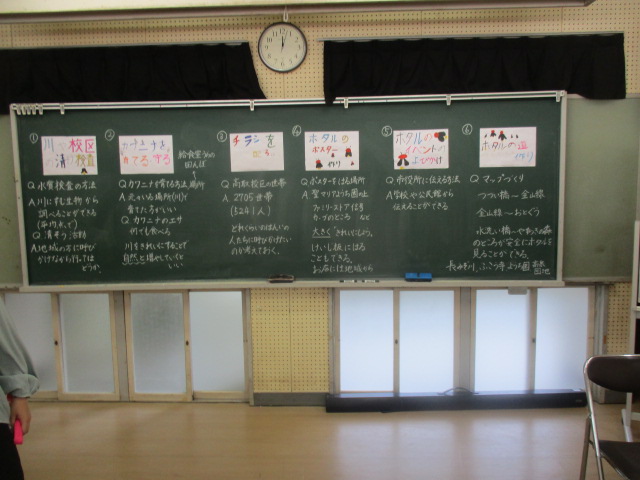 ①
川や校区
の清い検査
Q 水質検査の方法
A 川にすむ生物から
調べることができる
Q 清そう活動
A 地域の方に呼び
かけながら行っては
どうか。
②
カワニナを
育てる 守る
給食室うらの
田んぼ
Q カワニナを育てる方法、場所
A 元々いる場所(川)で
育てた方がいい
Q カワニナのエサ
何でも食べる
川をきれいにすることで
自然と増やしていくと
いい
③
チラシを
Q 高取校区の世帯
A 2705世帯
(5241人)
どれくらいのはんいの
人たちに呼びかけたい
のか考えておく。
④
ホタルの
ポスター
作り
Q ポスターをはる場所
A 聖マリア
ファミリーストア
など
大きく きれいに
けいじ板にはる
こともできる。
お店には地域から
⑤
ホタルの
イベントの
よびかけ
Q 市役所に伝える方法
A 学校や公民館から
伝えることができる
⑥
ホタルの道
作り
Q マップづくり
つつい橋〜金山線
金山線〜
のところが安全にホタルを
見ることができる
団地